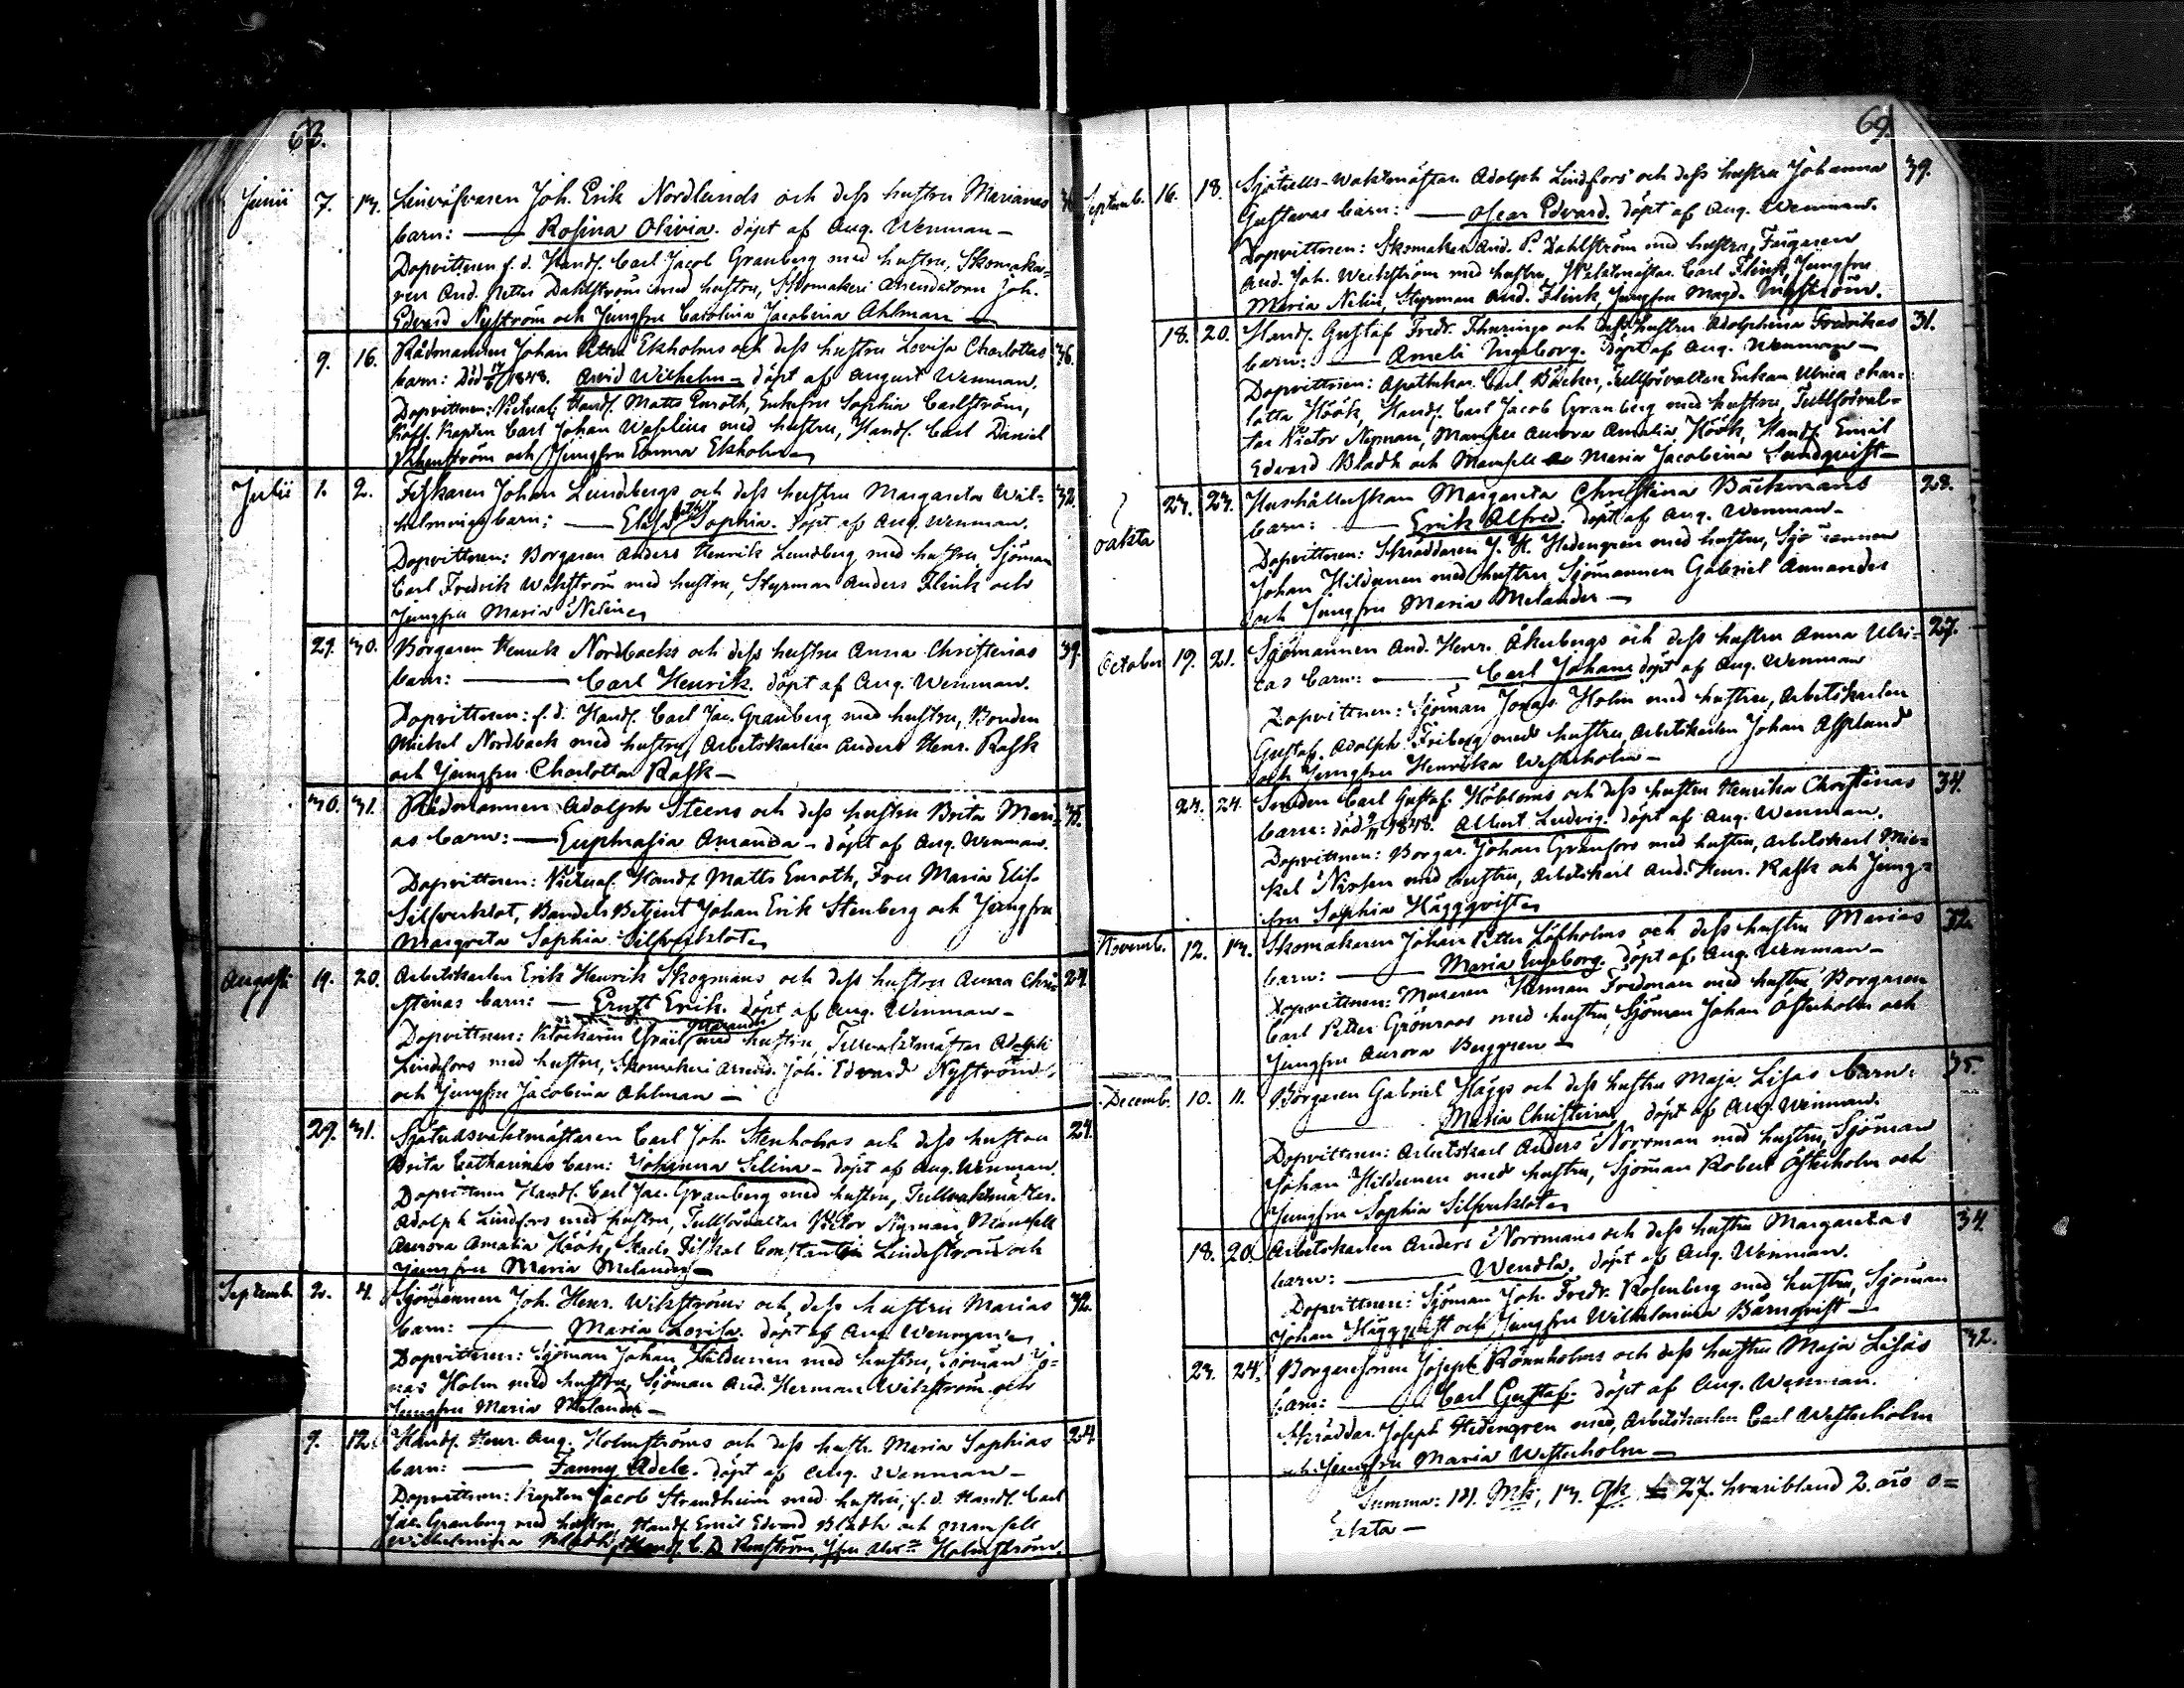 63.
Junii 7. 13. Linväfvaren Joh. Erik Nordlunds och dess hustru Marianas
barn: — Rosina Olivia. döpt af Aug. Wenman —
Dopvittnen f. d. Handl. Carl Jacob Granberg med hustru, Skomaka-
ren And. Petter Dahlström med hustru, Skomakeri Arendatorn Joh.
Edvard Nyström och Jungfru Carolina Jacobina Ahlman —
9. 16. Rådmannen Johan Petter Ekholms och dess hustru Lovisa Charlottas 36.
barn: Död 1848. Arvid Wilhelm — döpt af August Wenman.
Dopvittnen: Victual. Handl. Matts Enroth, Enkefru Sophia Carlström,
Koff. Kapten Carl Johan Waselius med hustru, Handl. Carl Daniel
och Jungfru Emma Ekholm
Julii 1. 2. Fiskaren Johan Lundbergs och dess hustru Margareta Wil= 32.
helminas barn: — Elisabeth Sophia. döpt af Aug. Wenman.
Dopvittnen: Borgaren Anders Henrik Lundberg med hustru, Sjöman
Carl Fredrik Wikström med hustru, Styrman Anders Flink och
Jungfru Maria Nelin
29. 30. Borgaren Henrik Nordbacks och dess hustru Anna Christinas 39.
barn: — Carl Henrik. döpt af Aug. Wenman.
Dopvittnen: f. d. Handl. Carl Jac. Granberg med hustru, Bonden
Mickel Nordback med hustru, Arbetskarlen Anders Henr. Rask
och Jungfru Charlotta Rask —
30. 31. Rådmannen Adolph Steens och dess hustru Brita Mari-
as barn: — Euphrasia Amanda — döpt af Aug. Wenman.
Dopvittnen: Victual. Handl. Matts Enroth, Fru Maria Elis.
Silfverklot, Betjent Johan Erik Stenberg och Jungfru
Margreta Sophia Silfverklot
Augusti 19. 20. Arbetskarlen Erik Henrik Skogmans och dess hustru Anna Chri- 24.
stinas barn: — Ernst Erik. döpt af Aug. Wenman —
Dopvittnen: Klockaren med hustru, Tullvaktmästar Adolph
Lindfors med hustru, Skomakeri Arend. Joh. Edvard Nyström
och Jungfru Jacobina Ahlman —
29. 31. Sjötullsvaktmästaren Carl Joh. Stenholms och dess hustru 24.
Brita Catharinas barn: Johanna Selina — döpt af Aug. Wenman.
Dopvittnen Handl. Carl Jac. Granberg med hustru, Tullvaktmäster.
Adolph Lindfors med hustru, Tullförvaltar Victor Nyman, Mamsell
Aurora Amalia Höök, Stads Fiskal Constantin Lindeström och
Jungfru Maria Melander —
Septemb. 2. 4. Sjömannen Joh. Henr. Wikströms och dess hustru Marias 32.
barn: — Maria Lovisa. döpt af Aug. Wenman
Dopvittnen: Sjöman Johan Hildunen med hustru, Sjöman Jo-
nas Holm med hustru, Sjöman And. Herman Wikström och
Jungfru Maria Melander —
9. 12. Handl. Henr. Aug. Holmströms och dess hustr. Maria Sophias 24.
barn: — Fanny Adele. döpt af Aug. Wenman —
Dopvittnen: Kapten Jacob Strandheim med hustru, f. d. Handl. Carl
Jac. Granberg med hustru, Handl. Emil Edvard Bladh och Mamsell
Wilhelmina Bladh, Handl. C. D. Jfru Holmström.
69.
Septemb. 16. 18. Sjötulls-Waktmästar. Adolph Lindfors och dess hustru Johanna 39.
Gustavas barn: — Oscar Edvard. döpt af Aug. Wenman.
Dopvittnen: Skomakar. And. P. Dahlström med hustru, Färgaren
And. Joh. Weckström med hustru, Waktmästar. Carl Flink, Jungfru
Maria Nelin, Styrman And. Flink, Jungfru Magd. Nyström.
18. 20. Handl. Gustaf Fredr. Thurings och dess hustru Adolphina Fredrikas 31.
barn: — Ameli Ingeborg. Döpt af Aug. Wenman —
Dopvittnen: Apothekar. Carl Bäcker, Tullförvaltare Enkan Ulrica Char-
lotta Höök, Handl. Carl Jacob Granberg med hustru, Tullförval-
tar Victor Nyman, Mamsell Aurora Amalia Höök, Handl. Emil
Edvard Bladh och Mamsell Maria Jacobina Sundqvist —
oäkta 23. 23. Hushållerskan Margareta Christina Bäckmans 28.
barn: — Erik Alfred. döpt af Aug. Wenman —
Dopvittnen: Skräddaren J. H. Hedengren med hustru, Sjömannen
Johan Hildunen med hustru, Sjömannen Gabriel Amander
och Jungfru Maria Melander —
October 19. 21. Sjömannen And. Henr. Åkerbergs och dess hustru Anna Ulri- 27.
cas barn: — Carl Johan döpt af Aug. Wenman
Dopvittnen: Sjöman Jonas Holm med hustru, Arbetskarlen
Gustaf Adolph Friberg med hustru, Arbetskarlen Johan Asplund
och Jungfru Henrika Westerholm —
23. 24. Smeden Carl Gustaf Höbloms och dess hustru Henrika Christinas 34.
barn: död 9/11 1848. Albert Ludvig. döpt af Aug. Wenman.
Dopvittnen: Borgar. Johan Granfors med hustru, Arbetskarl Mic-
kel Nissen med hustru, Arbetskarl And. Henr. Rask och Jung-
fru Sophia Häggqvist
Novemb. 12. 13. Skomakaren Johan Petter Löfholms och dess hustru Marias 32.
barn: — Maria Ingeborg. döpt af Aug. Wenman —
Dopvittnen: Muraren Herman Fredman med hustru Borgaren
Carl Petter Grönroos med hustru, Sjöman Johan Österholm och
Jungfru Aurora Berggren —
Decemb. 10. 11. Borgaren Gabriel Häggs och dess hustru Maja Lisas barn: 35.
Maria Christina, döpt af Aug. Wenman.
Dopvittnen: Arbetskarl Anders Norrman med hustru, Sjöman
Johan Hildunen med hustru, Sjöman Robert Österholm och
Jungfru Sophia Silfverklot
18. 20. Arbetskarlen Anders Norrmans och dess hustru Margaretas 34.
barn: — Wendla. döpt af Aug. Wenman.
Dopvittnen: Sjöman Joh. Fredr. Rosenberg med hustru, Sjöman
Johan Häggqvist och Jungfru Wilhelmina Bärnqvist —
23. 24. Borgaresonen Joseph Rönnholms och dess hustru Maja Lisas 32.
barn: — Carl Gustaf. döpt af Aug. Wenman.
Skräddar. Joseph Hedengren med, Arbetskarlen Carl Westerholm
och Jungfru Maria Westerholm —
Summa: Mk, 13. Qk 27. hvaribland 2. äro o=
äkta —